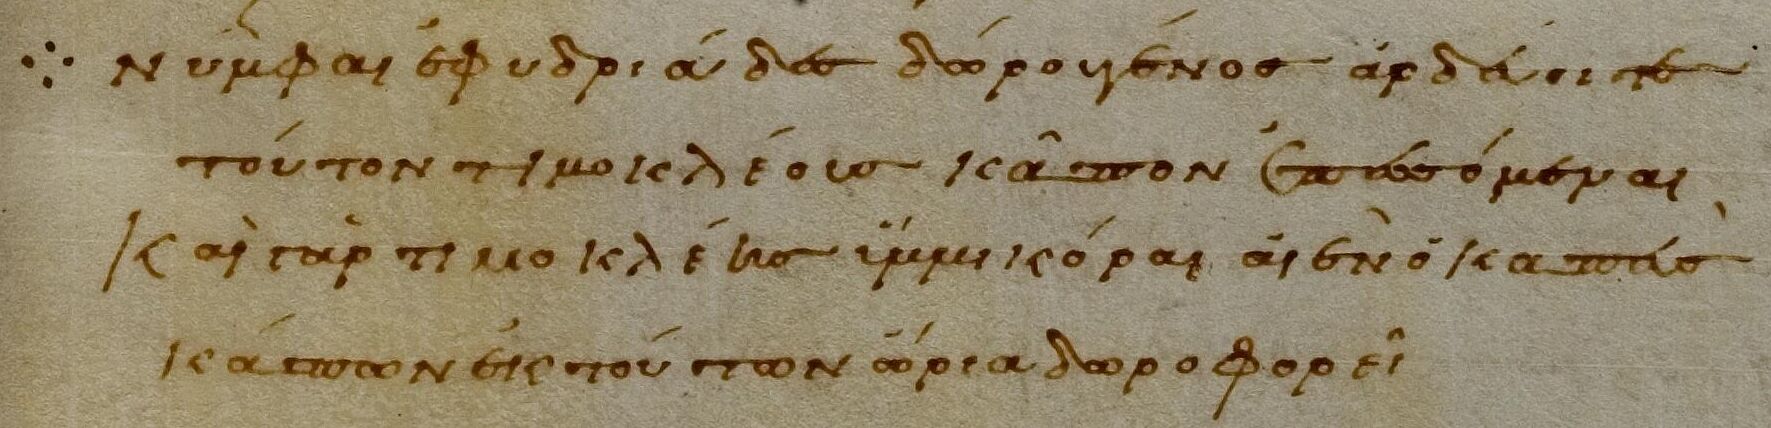 ⁘ νύμφαι ἐφυδριάδες δώρου γένος ἀρδεύοιτε
τοῦτον τιμοκλέους κᾶπον ἐπεσσόμεναι
καὶ γὰρ τιμοκλέης ὔμμι κόραι αἰὲν ὁ καπεὺς
κάπων ἐκ τούτων ὥρια δωροφορεῖ